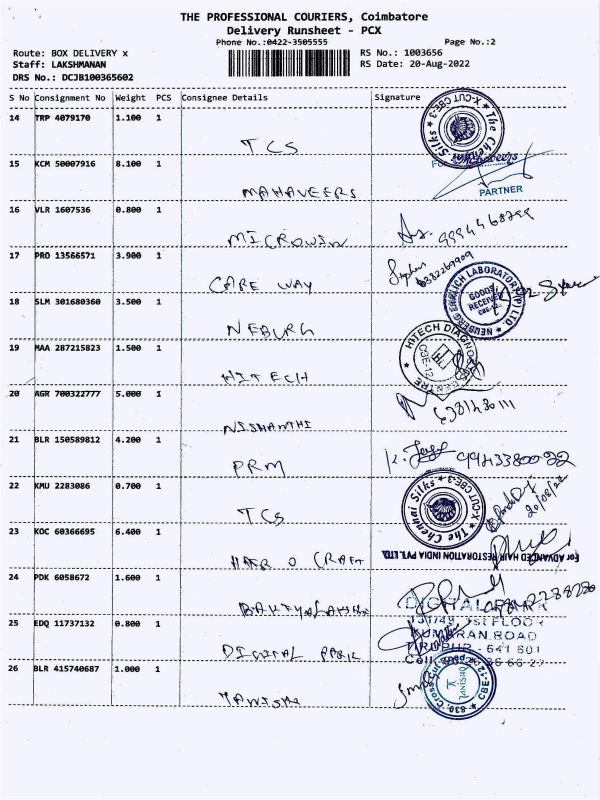 THE PROFESSIONAL COURIERS, Coimbatore
Delivery Runsheet - PCX
Phone No.:0422-3505555
Page No.:2
Route: BOX DELIVERY x
RS No.: 1003656
Staff: LAKSHMANAN
RS Date: 20-Aug-2022
DRS No.: DCJB100365602
S No Consignment No Weight PCS Consignee Details Signature
14 TRP 4079170 1.100 1
TCS
The Chennai Silks
X-CUT CBE-3
15 KCM 50007916 8.100 1
MAHAVEERS
PARTNER
16 VLR 1607536 0.800 1
MICROWIN
17 PRO 13566571 3.900 1
CARE WAY
18 SLM 301680360 3.500 1
NEBURG
NEUBERG EHRLICH LABORATORY (P) LTD
GOODS
RECEIVED
19 MAA 287215823 1.500 1
HITECH
HITECH DIAGNO
CENTRE
CBE-12
20 AGR 700322777 5.000 1
NISHANTHI
21 BLR 150589812 4.200 1
PRM
22 KMU 2283086 0.700 1
TCS
The Chennai Silks
X-CUT CBE-3
20/08/22
23 KOC 60366695 6.400 1
HAIR O CRAFT
For ADVANCED HAIR RESTORATION INDIA PVT. LTD.
24 PDK 6058672 1.600 1
25 EDQ 11737132 0.800 1
DIGITAL PARK
DIGITAL PARK
1ST FLOOR
ROAD
TIRUPUR - 641 601
26 BLR 415740687 1.000 1
TANISHQ
TANISHQ